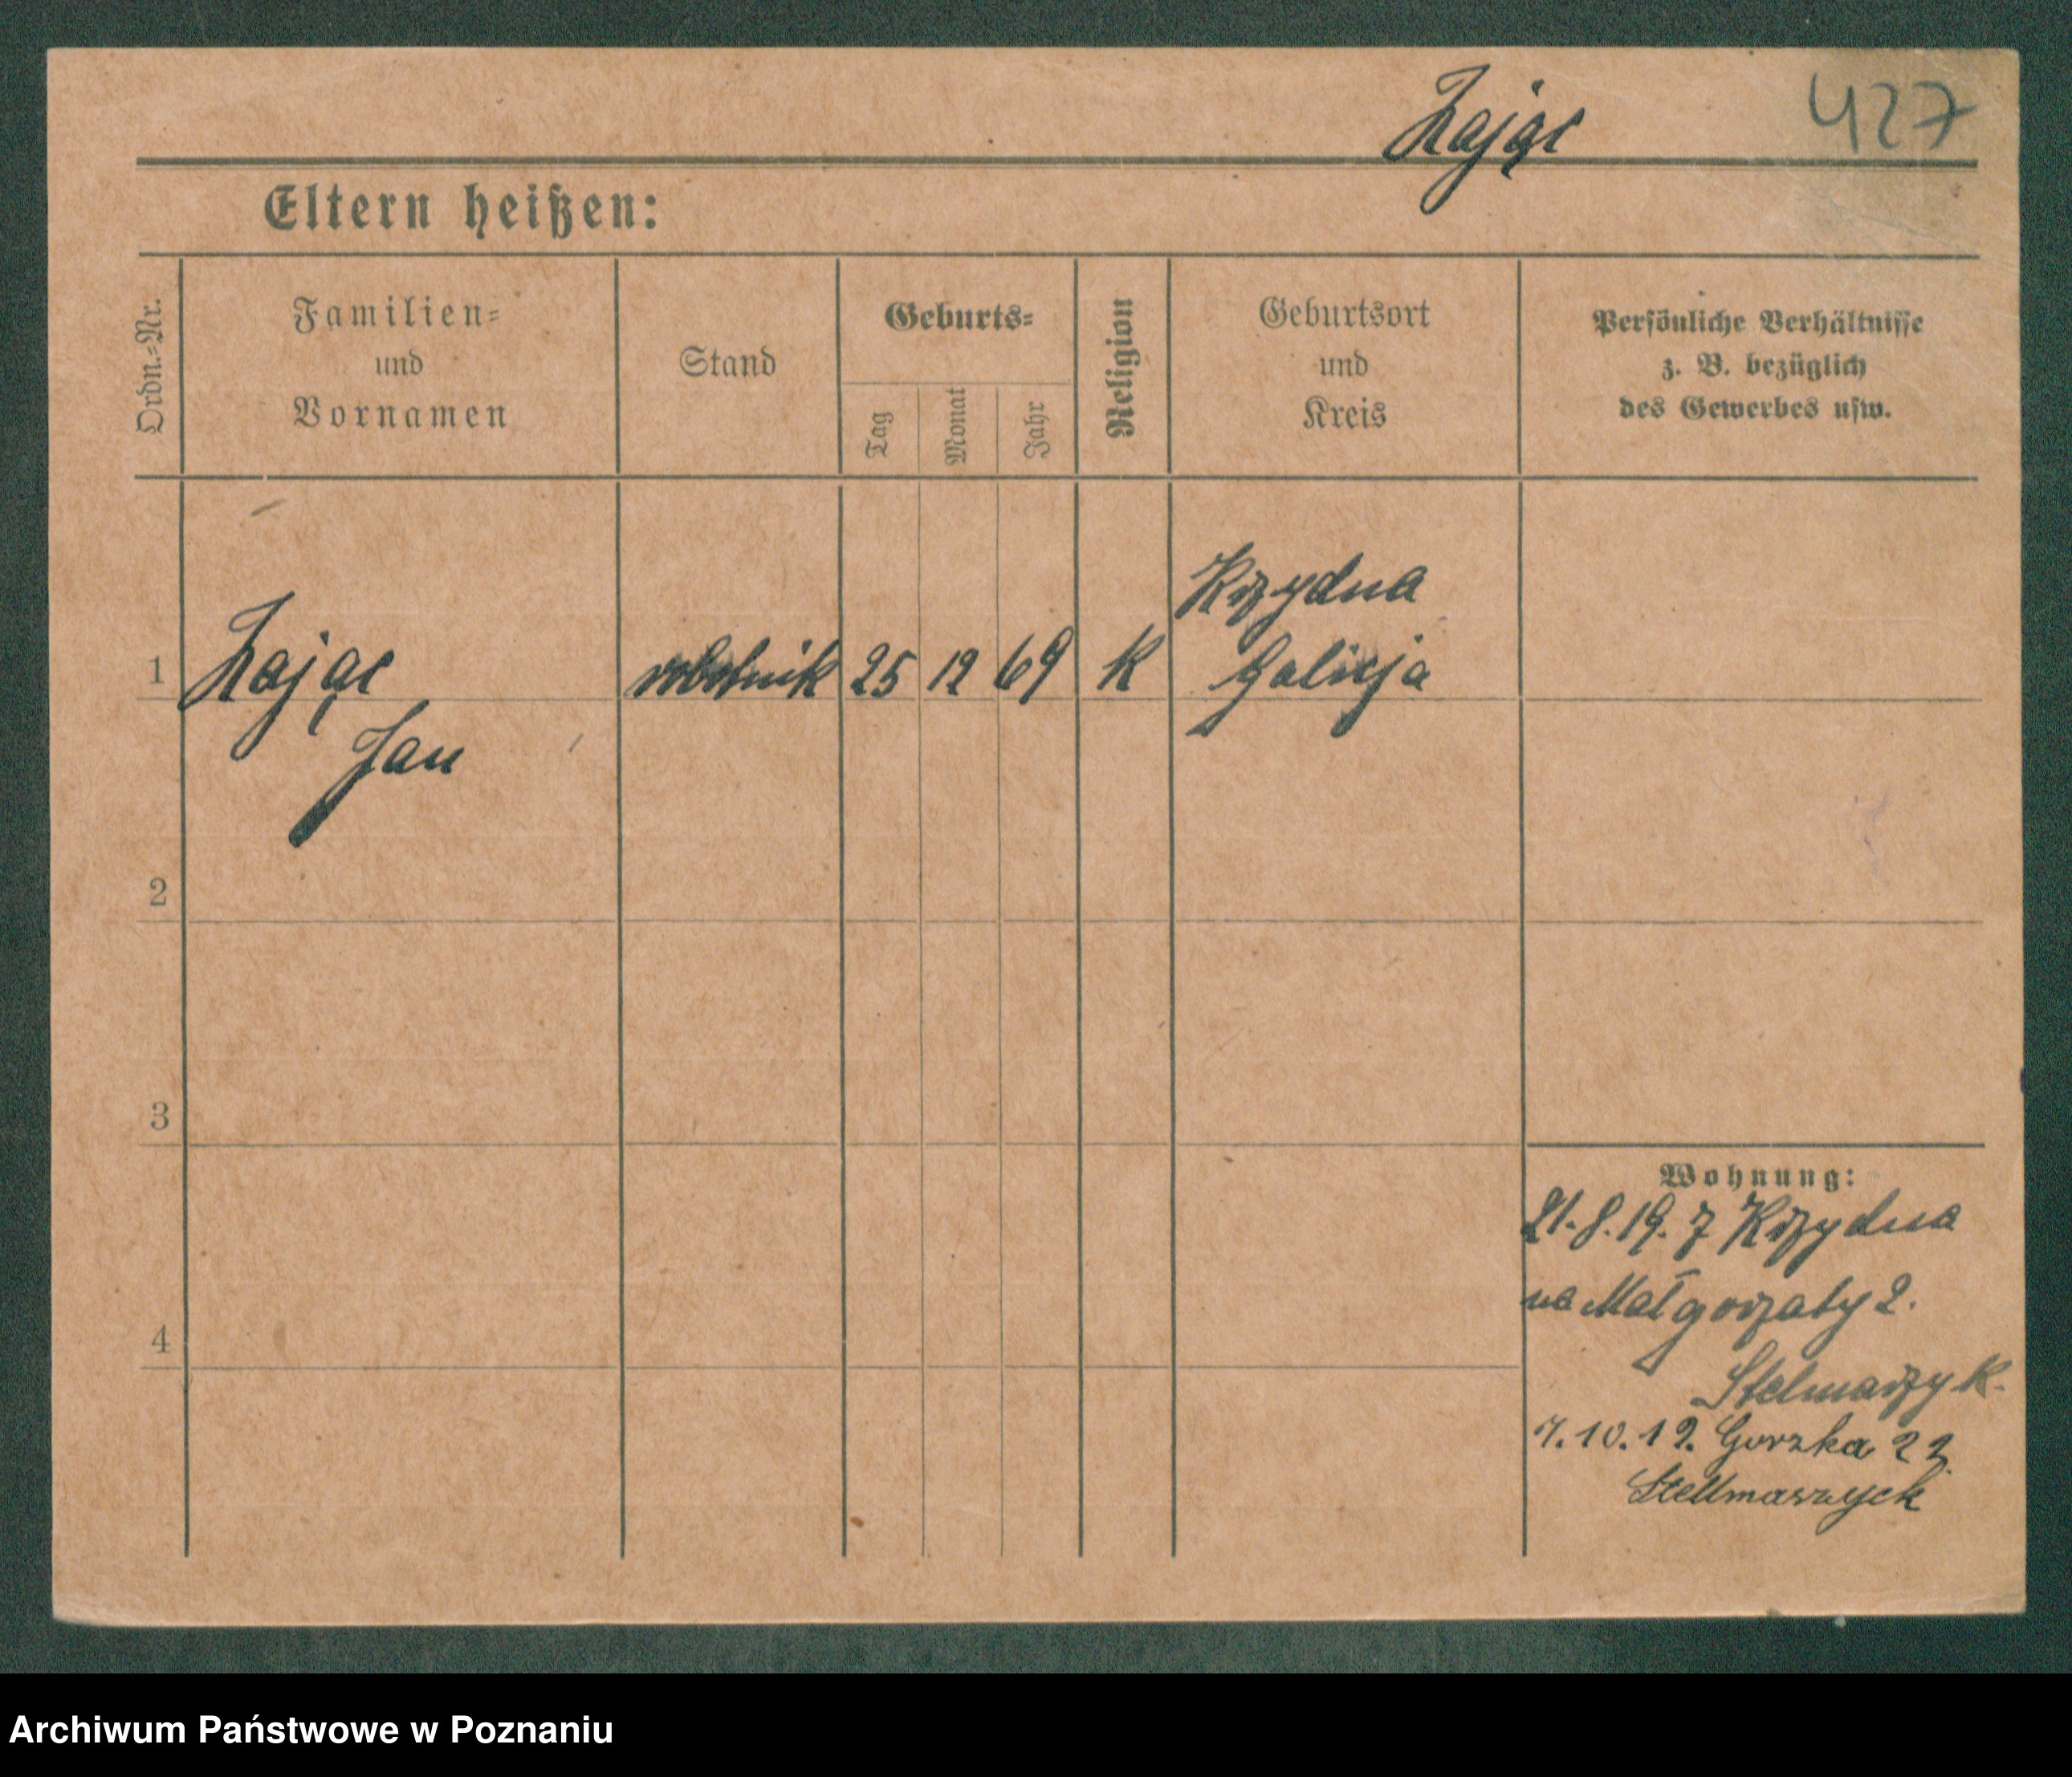 Zając 427
Eltern heißen:
Ordn.=Nr.
Familien=
und
Vornamen
Stand
Geburts=
Tag
Monat
Jahr
Religion
Geburtsort
und
Kreis
Persönliche Verhältnisse
z. B. bezüglich
des Gewerbes usw.
Krzydna
1 Zając robotnik 25 12 69 k Galicja
Jan
2
3
4
Wohnung:
21.8.19. z Krzydna
na Małgorzaty 2.
Stelmaszyk.
7.10.19. Gorzka 22
Stellmaszyck
Archiwum Państwowe w Poznaniu